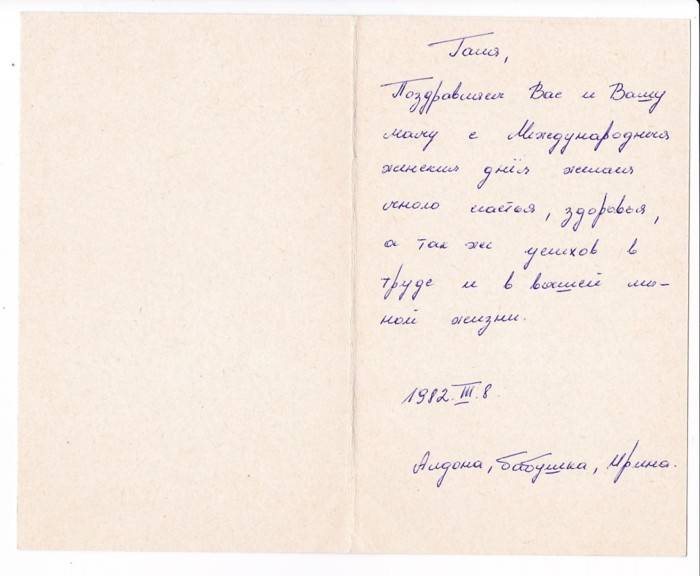 Галя,
Поздравляем Вас и Вашу
маму с Международным
женским днём желаем
много счастья, здоровья,
а так же успехов в
труде и в вашей лич-
ной жизни.
1982.III.8.
Алдона, бабушка, Ирина.